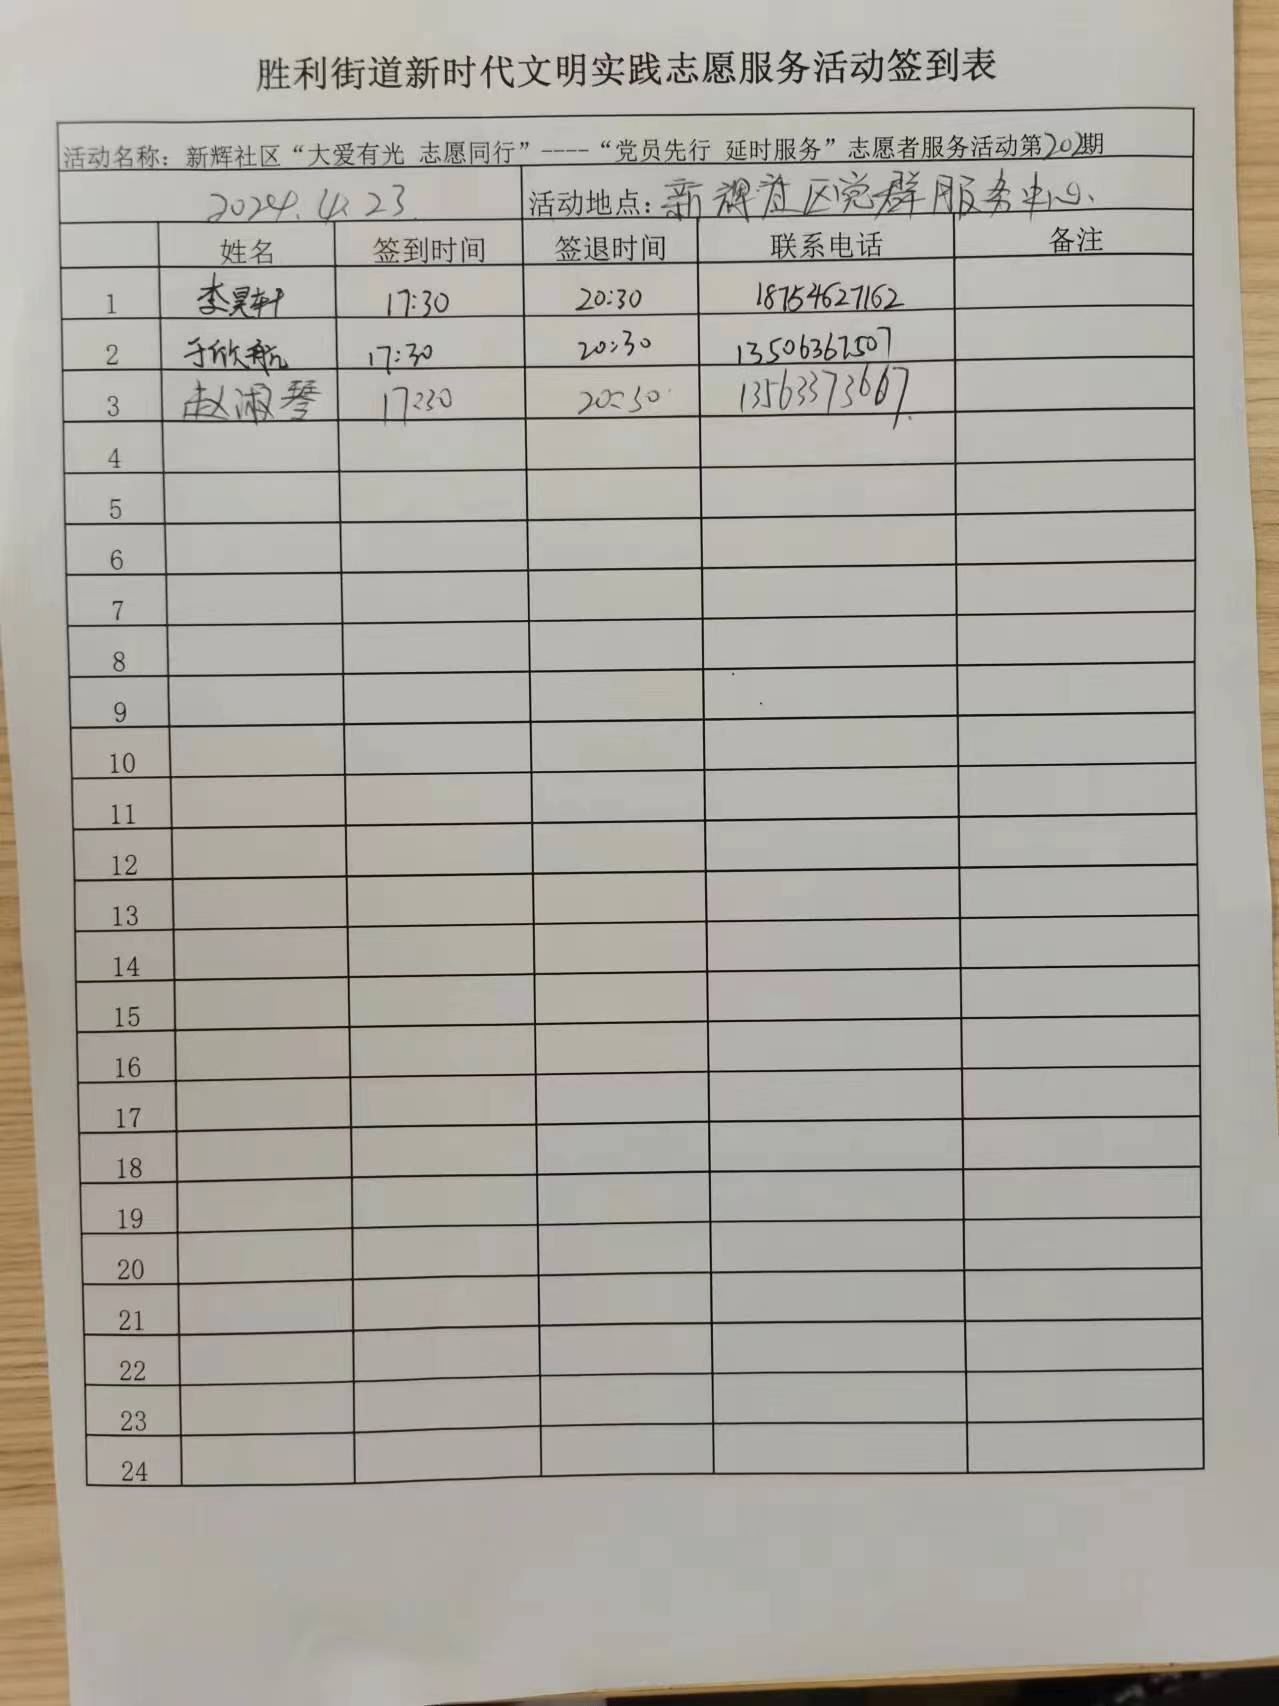 胜利街道新时代文明实践志愿服务活动签到表
活动名称：新辉社区“大爱有光 志愿同行”----“党员先行 延时服务”志愿者服务活动第202期
2024.4.23. 活动地点：新辉社区党群服务中心.
姓名 签到时间 签退时间 联系电话 备注
1 李昊轩 17:30 20:30 18754627162
2 于欣航 17:30 20:30 13506367507
3 赵淑琴 17:30 20:30 13563373667.
4
5
6
7
8
9
10
11
12
13
14
15
16
17
18
19
20
21
22
23
24